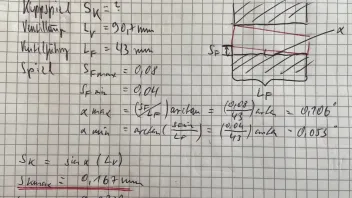 Kippspiel SK = ?
LV = 90,7 mm
LF = 43 mm
Spiel SFmax = 0,08
SFmin = 0,04
αmax = (SF/LF) arctan = (0,08/43) arctan = 0,106°
αmin = arctan (SFmin/LF) = (0,04/43) arctan = 0,053°
SK = sin α (LV)
SKmax = 0,167 mm
SF
α
LF